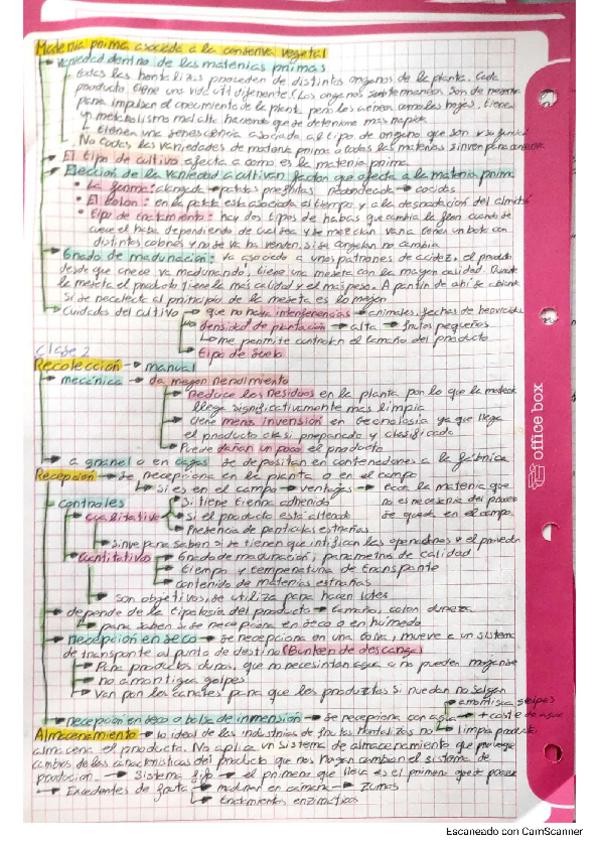 Materia prima asociada a la conserva vegetal
→ Variedad dentro de las materias primas
todas las hortalizas proceden de distintos organos de la planta. Cada
producto tiene una vida util diferente (Los organos son de reserva
para impulsar el crecimiento de la planta pero los aéreos como las hojas, tienen
un metabolismo mal alto haciendo que se deteriore mas rapido
tienen una senescencia asociada al tipo de organo que son y su función
No todas las variedades de materia prima o todas las materias sirven para conserva
→ El tipo de cultivo afecta a como es la materia prima.
→ Elección de la variedad a cultivar factor que afecta a la materia prima
• La forma: alargada → patatas prefritas redondeada → cocidas
• El color: en la patata esta asociado al tiempo y a la degradación del almidón
• tipo de crecimiento: hay dos tipos de habas que cambia la flor cuando se
cuece el haba dependiendo de cual sea y se mezclan varia
distintos colores y no se va ha vender, si se congelan no cambia
→ Grado de maduración: va asociado a unos patrones de acidez, el producto
desde que crece va madurando, tiene una meseta con la mayor calidad. Durante
la meseta el producto tiene la más calidad y el mas peso. A partir de ahí se
Si se recolecta al principio de la meseta es lo mejor
→ Cuidados del cultivo → que no haya interferencias → animales, fechas de
→ densidad de plantación → alta → frutos pequeños
→ me permite controlar el tamaño del producto
→ tipo de suelo
Clase 2
Recolección → manual
→ mecánica → da mayor rendimiento
→ Reduce los residuos en la planta por lo que la materia
llega significativamente mas limpia
→ tiene menos inversión en tecnología ya que llega
el producto casi preparado y clasificado
→ Puede dañar un poco el producto
→ a granel o en cajas se depositan en contenedores a la fábrica
Recepción → Se recepciona en la planta o en el campo
→ Si es en el campo → ventajas → con la materia que
no es necesaria del proceso
se queda en el campo.
→ Controles
→ Cualitativo → Si tiene tierra adherida
→ Si el producto está alterado
→ Presencia de particulas extrañas
→ Sirve para saber si se tienen que los operarios y el proveedor
→ Cuantitativos → Grado de maduración, parametros de calidad
→ tiempo y temperatura de transporte
→ contenido de materias extrañas
→ son objetivos, se utiliza para hacer lotes
→ depende de la tipología del producto → tamaño, color dureza
→ para saber si se recepciona en seco o en húmedo
→ recepción en seco → Se recepciona en una tolva, mueve a un sistema
de transporte al punto de destino (Bunker de descarga)
→ Para productos duros, que no necesitan agua o no pueden mojarse
→ no amortigua golpes
→ van por los canales para que los productos si ruedan no salgan
→ amortigua golpes
→ recepción en seco o balsa de inmersión → Se recepciona con agua → + coste de agua
→ limpia producto
Almacenamiento → lo ideal de las industrias de frutas hortalizas no
almacena el producto. No aplica un sistema de almacenamiento que provenga
cambios de las características del producto que nos hagan cambiar el sistema de
producción. → Sistema fijo → el primero que llega es el primero que se procesa
→ Excedentes de fruta → madurar en cámara → zumos
→ tratamientos enzimáticos
office box
Escaneado con CamScanner